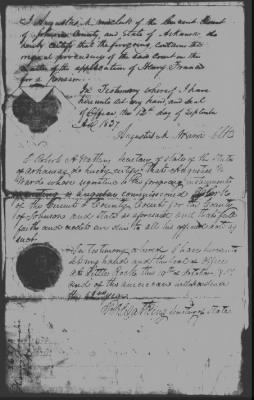 I Augustus M. Ward clerk of the Circuit Court
of Johnson County, and State of Arkansas do
hereby certify that the foregoing contains the
original proceedings of the said Court in the
matter of the application of Henry Francis
for a Pension.
In Testimony whereof I have
hereunto set my hand, and seal
of Office, this 12th day of September
1837
Augustus M. Ward Clk
I Robert A Watkins Secretary of State of the State
of Arkansas, do hereby certify that Augustus M
Ward whose signature is the foregoing instrument
is a duly commissioned Clerk
of the Circuit & County Court for the County
of Johnson and State as aforesaid and that full
faith and credit are due to all his official acts as
such
In testimony whereof I have hereunto
set my hand and the Seal of Office
at Little Rock this 19th October 1837
and of the american independence
the 62nd year
Robt A Watkins Secretary of State